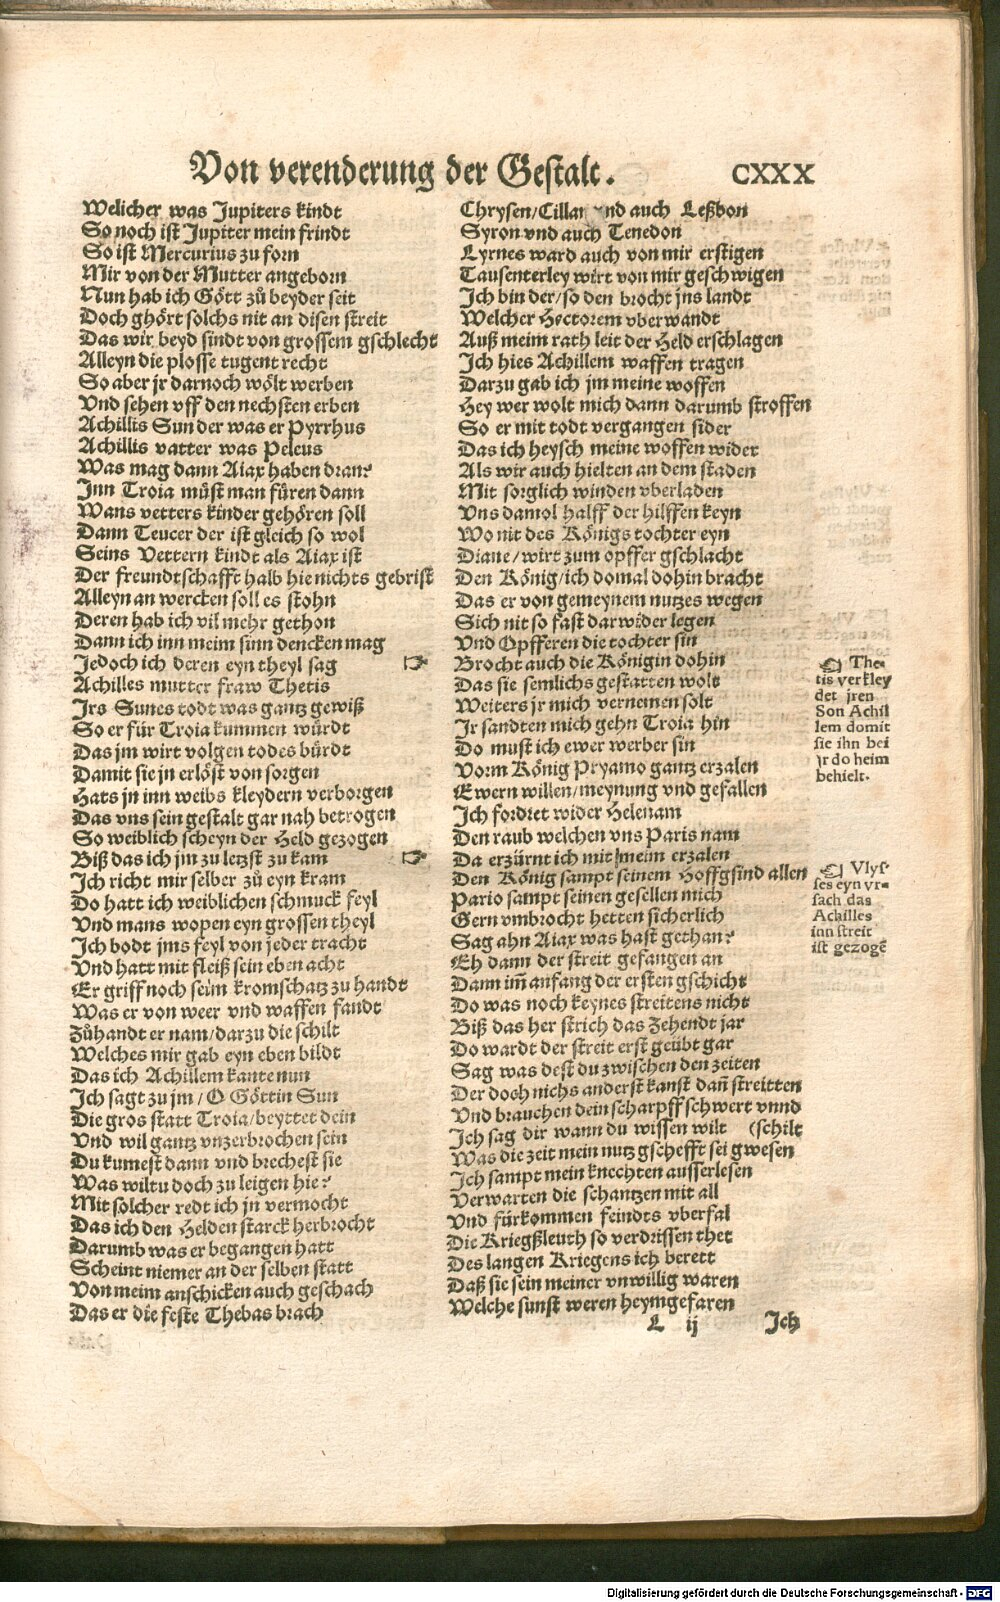 Von verenderung der Gestalt. CXXX
Welicher was Jupiters kindt
So noch ist Jupiter mein frindt
So ist Mercurius zu forn
Mir von der Mutter angeborn
Nun hab ich Gött zů beyder seit
Doch ghört solchs nit an disen streit
Das wir beyd sindt von grossem gschlecht
Alleyn die plosse tugent recht
So aber jr darnoch wölt werben
Vnd sehen vff den nechsten erben
Achillis Sun der was er Pyrrhus
Achillis vatter was Peleus
Was mag dann Aiax haben dran?
Inn Troia můst man füren dann
Wans vetters kinder gehören soll
Dann Teucer der ist gleich so wol
Seins Vettern kindt als Aiax ist
Der freundtschafft halb hie nichts gebrist
Alleyn an wercken soll es stohn
Deren hab ich vil mehr gethon
Dann ich inn meim sinn dencken mag
Jedoch ich deren eyn theyl sag ☞
Achilles mutter fraw Thetis
Irs Sunes todt was gantz gewiß
So er für Troia kummen würdt
Das jm wirt volgen todes bürdt
Damit sie jn erlößt von sorgen
Hats jn inn weibs kleydern verborgen
Das vns sein gestalt gar nah betrogen
So weiblich scheyn der Held gezogen
Biß das ich jm zu letzst zu kam ☞
Ich richt mir selber zů eyn kram
Do hatt ich weiblichen schmuck feyl
Vnd mans wopen eyn grossen theyl
Ich bodt jms feyl von jeder tracht
Vnd hatt mit fleiß sein eben acht
Er griff noch seim kromschatz zu handt
Was er von weer vnd waffen fandt
Zůhandt er nam/darzu die schilt
Welches mir gab eyn eben bildt
Das ich Achillem kante nun
Ich sagt zu jm/O Göttin Sun
Die gros statt Troia/beyttet dein
Vnd wil gantz vnzerbrochen sein
Du kumest dann vnd brechest sie
Was wiltu doch zu leigen hie?
Mit solcher redt ich jn vermocht
Das ich den Helden starck herbrocht
Darumb was er begangen hatt
Scheint niemer an der selben statt
Von meim anschicken auch geschach
Das er die feste Thebas brach
Chrysen/Cillan nd auch Leßbon
Syron vnd auch Tenedon
Lyrnes ward auch von mir erstigen
Tausenterley wirt von mir geschwigen
Ich bin der/so den brocht jns landt
Welcher Hectorem vberwandt
Auß meim rath leit der Held erschlagen
Ich hies Achillem waffen tragen
Darzu gab ich jm meine woffen
Hey wer wolt mich dann darumb stroffen
So er mit todt vergangen sider
Das ich heysch meine woffen wider
Als wir auch hielten an dem staden
Mit sorglich winden vberladen
Vns damol halff der hilffen keyn
Wo nit des Königs tochter eyn
Diane/wirt zum opffer gschlacht
Den König/ich domal dohin bracht
Das er von gemeynem nutzes wegen
Sich nit so fast darwider legen
Vnd Opfferen die tochter sin
Brocht auch die Königin dohin
Das sie semlichs gestatten wolt
Weiters jr mich vernemen solt
Ir sandten mich gehn Troia hin
Do must ich ewer werber sin
Vorm König Pryamo gantz erzalen
Ewern willen/meynung vnd gefallen
Ich fordret wider Helenam
Den raub welchen vns Paris nam
Da erzürnt ich mit meim erzalen
Den König sampt seinem Hoffgsind allen
Pario sampt seinen gesellen mich
Gern vmbrocht hetten sicherlich
Sag ahn Aiax was hast gethan?
Eh dann der streit gefangen an
Dann im̃ anfang der ersten gschicht
Do was noch keynes streitens nicht
Biß das her strich das Zehendt jar
Do wardt der streit erst geübt gar
Sag was dest du zwischen den zeiten
Der doch nichs anderst kanst dañ streitten
Vnd brauchen dein scharpff schwert vnnd
Ich sag dir wann du wissen wilt (schilt
Was die zeit mein nutz gschefft sei gwesen
Ich sampt mein knechten ausserlesen
Verwarten die schantzen mit all
Vnd fürkommen feindts vberfal
Die Kriegßleuth so verdrissen thet
Des langen Kriegens ich berett
Daß sie sein meiner vnwillig waren
Welche sunst weren heymgefaren
L ij Ich
☜ The-
tis verkley
det jren
Son Achil
lem domit
sie ihn bei
jr do heim
behielt.
☜ Vlys-
ses eyn vr-
sach das
Achilles
inn streit
ist gezogẽ
Digitalisierung gefördert durch die Deutsche Forschungsgemeinschaft - DFG